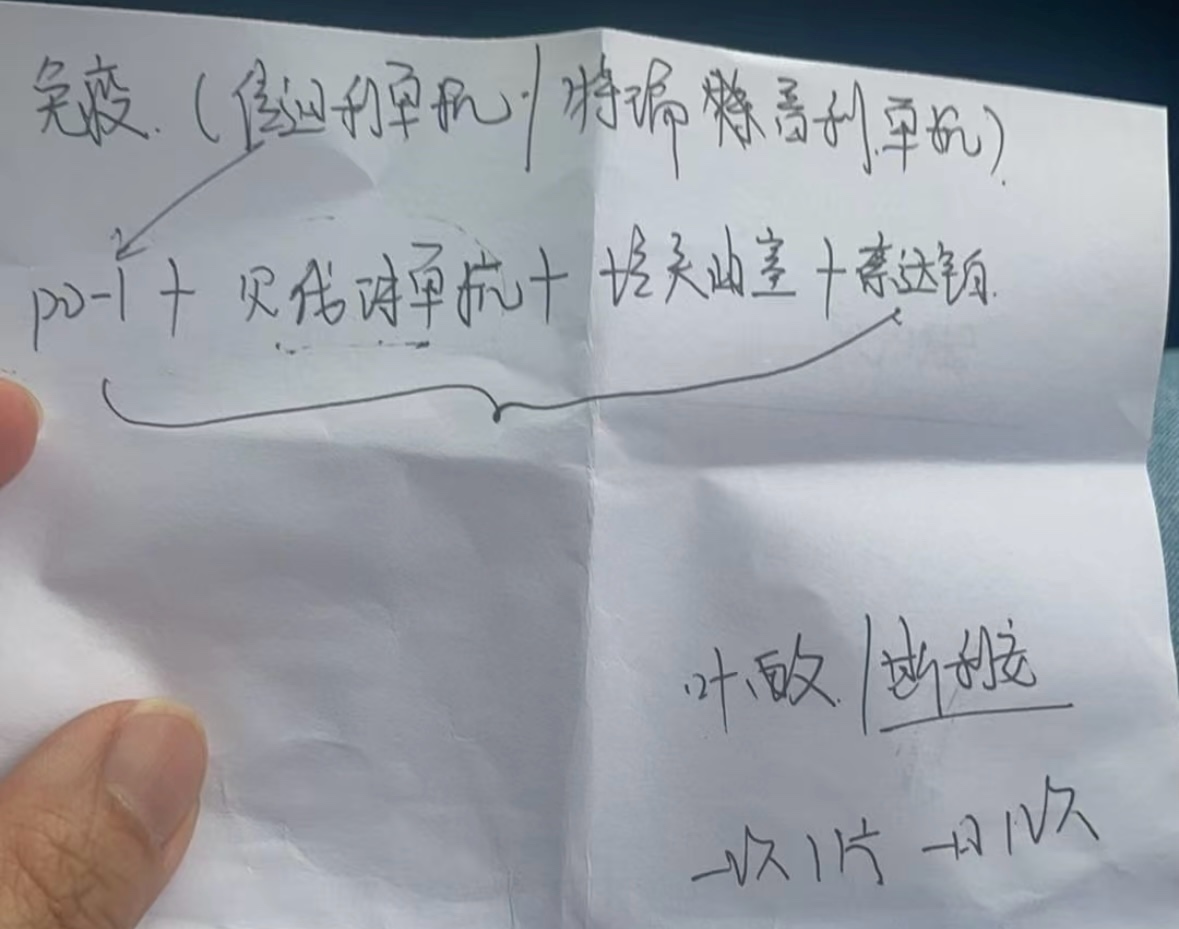 免疫.(信迪利单抗/特瑞普利单抗).
PD-1+贝伐珠单抗+培美曲塞+奈达铂.
叶酸/斯利安
一次1片 一日1次